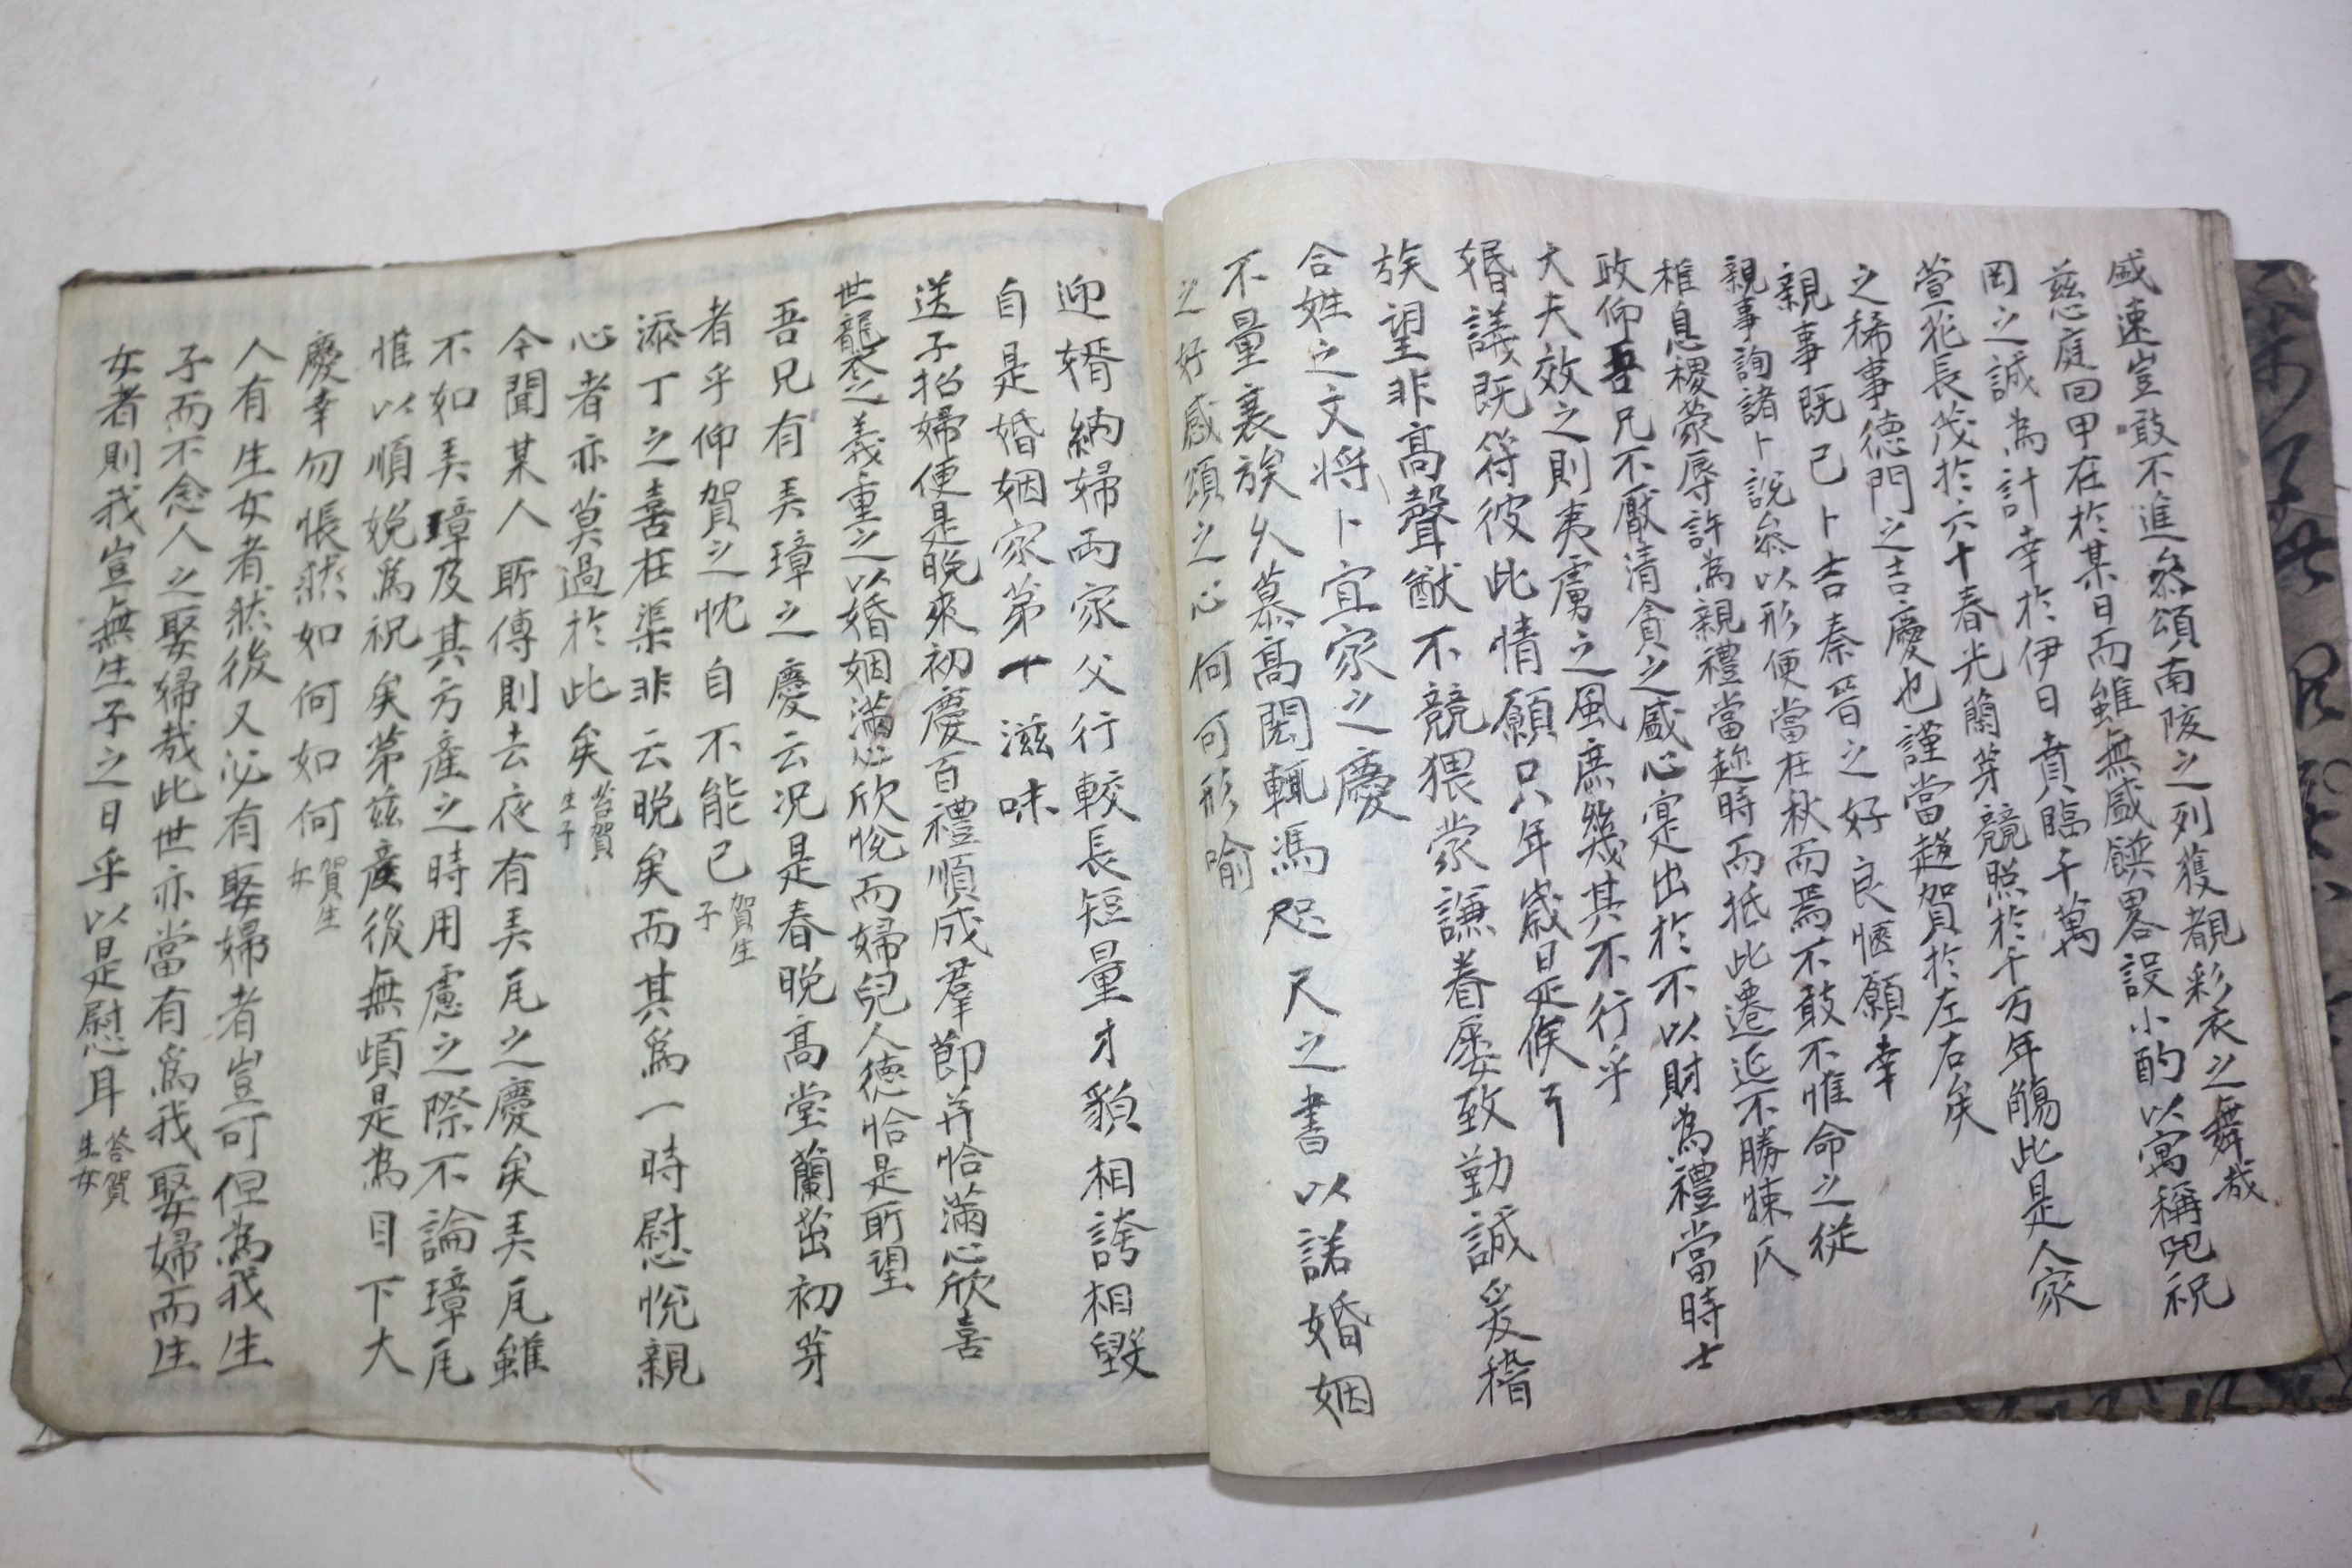 盛速豈敢不進叅頌南陔之列獲覩彩衣之舞哉
慈庭回甲在於某日而雖無盛饌畧設小酌以寓稱兕祝
岡之誠為計幸於伊日賁臨千萬
萱花長茂於六十春光蘭芽競照於千万年觴此是人家
之稀事德門之吉慶也謹當趨賀於左右矣
親事既已卜吉秦晉之好良愜願幸
親事詢諸卜說叅以形便當在秋而焉不敢不惟命之從
稚息稷蒙辱許為親禮當趂時而抵此遷延不勝悚仄
政仰吾兄不厭清貪之盛心寔出於不以財為禮當時士
大夫效之則夷虜之風庶幾其不行乎
婚議既符彼此情願只年歲日是俟耳
族望非高聲猷不競猥蒙謙眷屡致勤誠爰稽
合姓之文将卜宜家之慶
不量襄族久慕高閎輒馮咫尺之書以諾婚姻
之好感頌之心何可形喻
迎壻納婦両家父行較長短量才貌相誇相毀
自是婚姻家第一滋味
送子招婦便是晩來初慶百禮順成羣節并恰滿心欣喜
世龍之義重之以婚姻滿心欣悅而婦兒人德恰是所望
吾兄有弄璋之慶云况是春晩高堂蘭茁初芽
者乎仰賀之忱自不能已 賀生子
添丁之喜在渠非云晩矣而其爲一時慰悅親
心者亦莫過於此矣 荅賀生子
今聞某人所傳則去夜有弄瓦之慶矣弄瓦雖
不如弄璋及其方產之時用慮之際不論璋瓦
惟以順娩爲祝矣第玆產後無頉是為目下大
慶幸勿悵然如何如何 賀生女
人有生女者然後又必有娶婦者豈可但為我生
子而不念人之娶婦哉此世亦當有爲我娶婦而生
女者則我豈無生子之日乎以是慰耳 荅賀生女